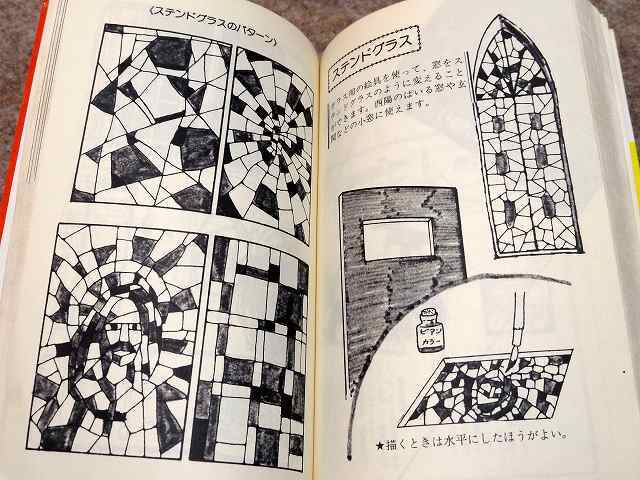 〈ステンドグラスのパターン〉
ステンドグラス
ガラス用の絵具を使って、窓をス
テンドグラスのように変えること
ができます。西陽のはいる窓や玄
関などの小窓に使えます。
ビアン
カラー
★描くときは水平にしたほうがよい。